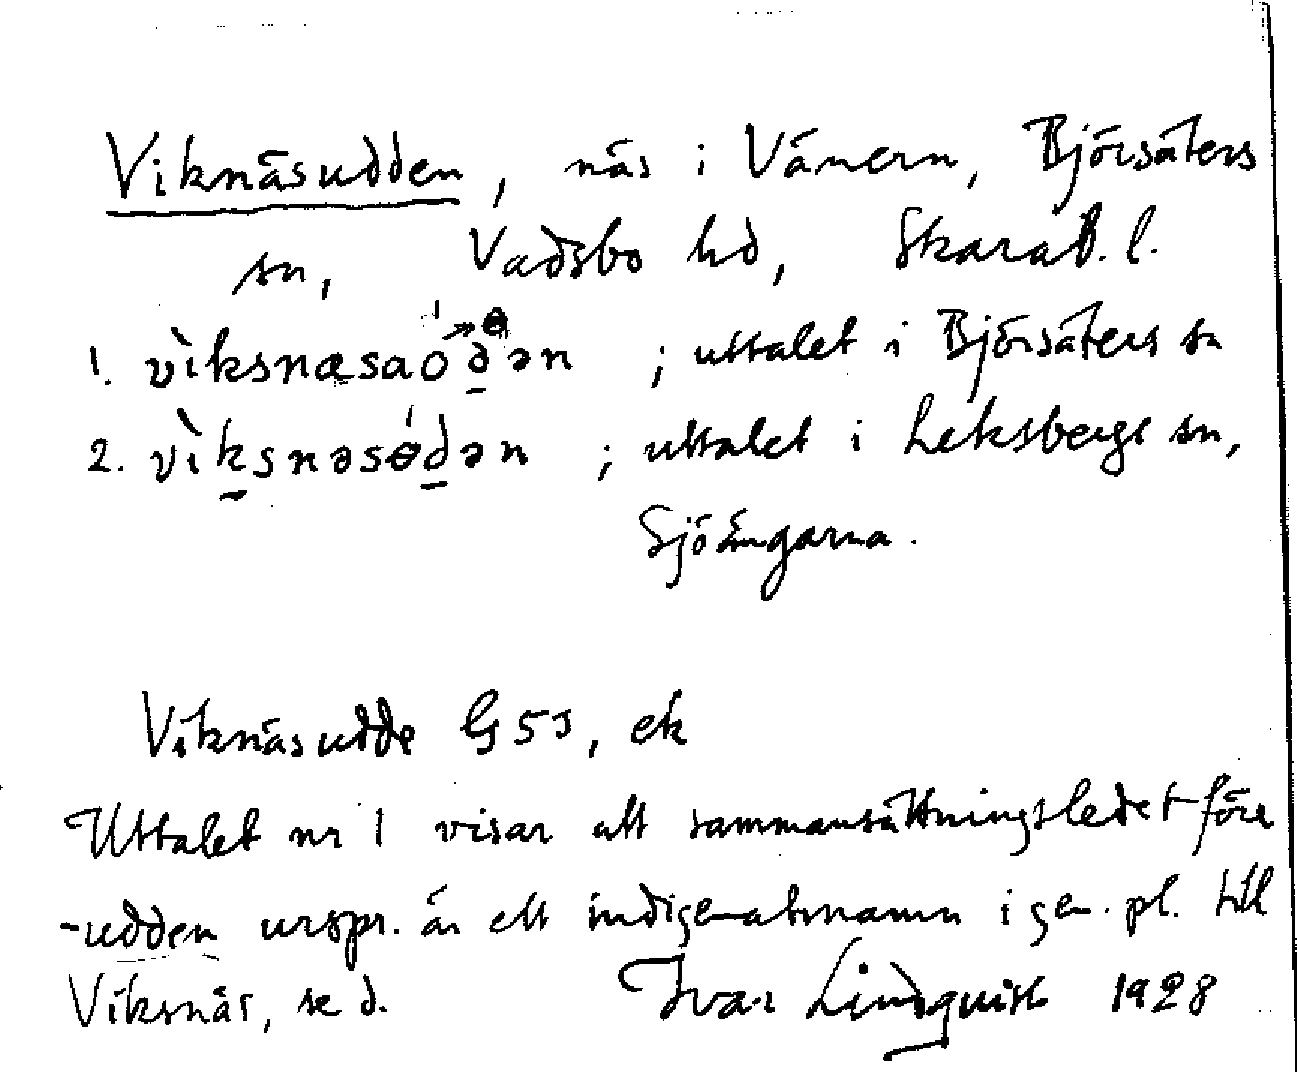 Viknäsudden, näs i Vänern, Björsäters
sn, Vadsbo hd, Skarab. l.
1. vìksnæsaódən ; uttalet i Björsäters sn
2. vìksnəsɵ́dən ; uttalet i Leksbergs sn,
Sjöängarna.
Viknäsudde G5J, ek
Uttalet nr 1 visar att sammansättningsledet före
-udden urspr. är ett indigenatsnamn i gen. pl. till
Viksnäs, se d. Ivar Lindquist 1928